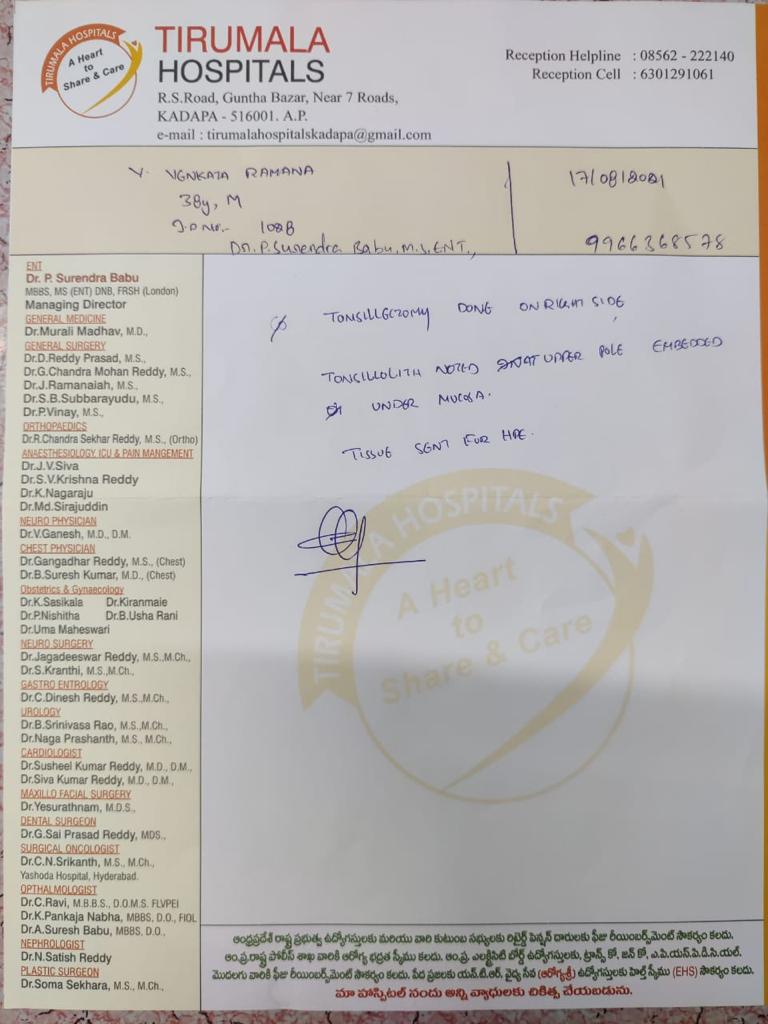 TIRUMALA HOSPITALS
A Heart
to
Share & Care
TIRUMALA
HOSPITALS
R.S.Road, Guntha Bazar, Near 7 Roads,
KADAPA - 516001. A.P.
e-mail : tirumalahospitalskadapa@gmail.com
Reception Helpline : 08562 - 222140
Reception Cell : 6301291061
Y. VENKATA RAMANA
38y, M
I.D NO.- 1088
Dr. P. Surendra Babu, M.S, ENT.,
17/08/2021
9966368578
ENT
Dr. P. Surendra Babu
MBBS, MS (ENT) DNB, FRSH (London)
Managing Director
GENERAL MEDICINE
Dr.Murali Madhav, M.D.,
GENERAL SURGERY
Dr.D.Reddy Prasad, M.S.,
Dr.G.Chandra Mohan Reddy, M.S.,
Dr.J.Ramanaiah, M.S.,
Dr.S.B.Subbarayudu, M.S.,
Dr.P.Vinay, M.S.,
ORTHOPAEDICS
Dr.R.Chandra Sekhar Reddy, M.S., (Ortho)
ANAESTHESIOLOGY, ICU & PAIN MANGEMENT
Dr.J.V.Siva
Dr.S.V.Krishna Reddy
Dr.K.Nagaraju
Dr.Md.Sirajuddin
NEURO PHYSICIAN
Dr.V.Ganesh, M.D., D.M.
CHEST PHYSICIAN
Dr.Gangadhar Reddy, M.S., (Chest)
Dr.B.Suresh Kumar, M.D., (Chest)
Obstetrics & Gynaecology
Dr.K.Sasikala Dr.Kiranmaie
Dr.P.Nishitha Dr.B.Usha Rani
Dr.Uma Maheswari
NEURO SURGERY
Dr.Jagadeeswar Reddy, M.S.,M.Ch.,
Dr.S.Kranthi, M.S.,M.Ch.,
GASTRO ENTROLOGY
Dr.C.Dinesh Reddy, M.S.,M.Ch.,
UROLOGY
Dr.B.Srinivasa Rao, M.S.,M.Ch.,
Dr.Naga Prashanth, M.S., M.Ch.,
CARDIOLOGIST
Dr.Susheel Kumar Reddy, M.D., D.M.,
Dr.Siva Kumar Reddy, M.D., D.M.,
MAXILLO FACIAL SURGERY
Dr.Yesurathnam, M.D.S.,
DENTAL SURGEON
Dr.G.Sai Prasad Reddy, MDS.,
SURGICAL ONCOLOGIST
Dr.C.N.Srikanth, M.S., M.Ch.,
Yashoda Hospital, Hyderabad.
OPTHALMOLOGIST
Dr.C.Ravi, M.B.B.S., D.O.M.S. FLVPEI
Dr.K.Pankaja Nabha, MBBS, D.O., FIOL
Dr.A.Suresh Babu, MBBS, D.O.,
NEPHROLOGIST
Dr.N.Satish Reddy
PLASTIC SURGEON
Dr.Soma Sekhara, M.S., M.Ch.,
TONSILLECTOMY DONE ON RIGHT SIDE
TONSILLOLITH NOTED AT UPPER POLE EMBEDDED
UNDER MUCOSA.
TISSUE SENT FOR HPE.
TIRUMALA HOSPITALS
A Heart
to
Share & Care
ఆంధ్రప్రదేశ్ రాష్ట్ర ప్రభుత్వ ఉద్యోగస్తులకు మరియు వారి కుటుంబ సభ్యులకు రిటైర్డ్ పెన్షన్ దారులకు ఫీజు రీయింబర్స్‌మెంట్ సౌకర్యం కలదు.
ఆం.ప్ర.రాష్ట్ర పోలీస్ శాఖ వారికి ఆరోగ్య భద్రత స్కీము కలదు. ఆం.ప్ర. ఎలక్ట్రిసిటి బోర్డ్ ఉద్యోగస్తులకు, ట్రాన్స్ కో, జన్ కో, ఎ.పి.యస్.పి.డి.సి.యల్.
మొదలగు వారికి ఫీజు రీయింబర్స్‌మెంట్ సౌకర్యం కలదు. పేద ప్రజలకు యన్.టి.ఆర్. వైద్య సేవ (ఆరోగ్యశ్రీ) ఉద్యోగస్తులకు హెల్త్ స్కీము (EHS) సౌకర్యం కలదు.
మా హాస్పిటల్ నందు అన్ని వ్యాధులకు చికిత్స చేయబడును.